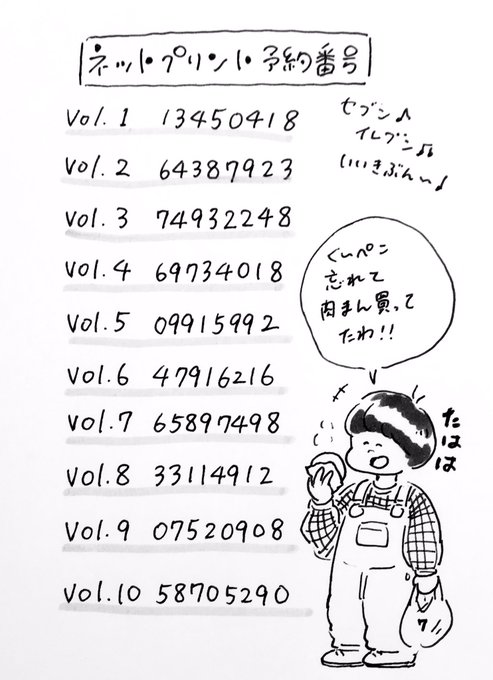 ネットプリント予約番号
Vol. 1 13450418
Vol. 2 64387923
Vol. 3 74932248
Vol. 4 69734018
Vol. 5 09915992
Vol. 6 47916216
Vol. 7 65897498
Vol. 8 33114912
Vol. 9 07520908
Vol. 10 58705290
セブン♪
イレブン♫
いいきぶん〜♪
くいペン
忘れて
肉まん買って
たわ!!
たはは
7